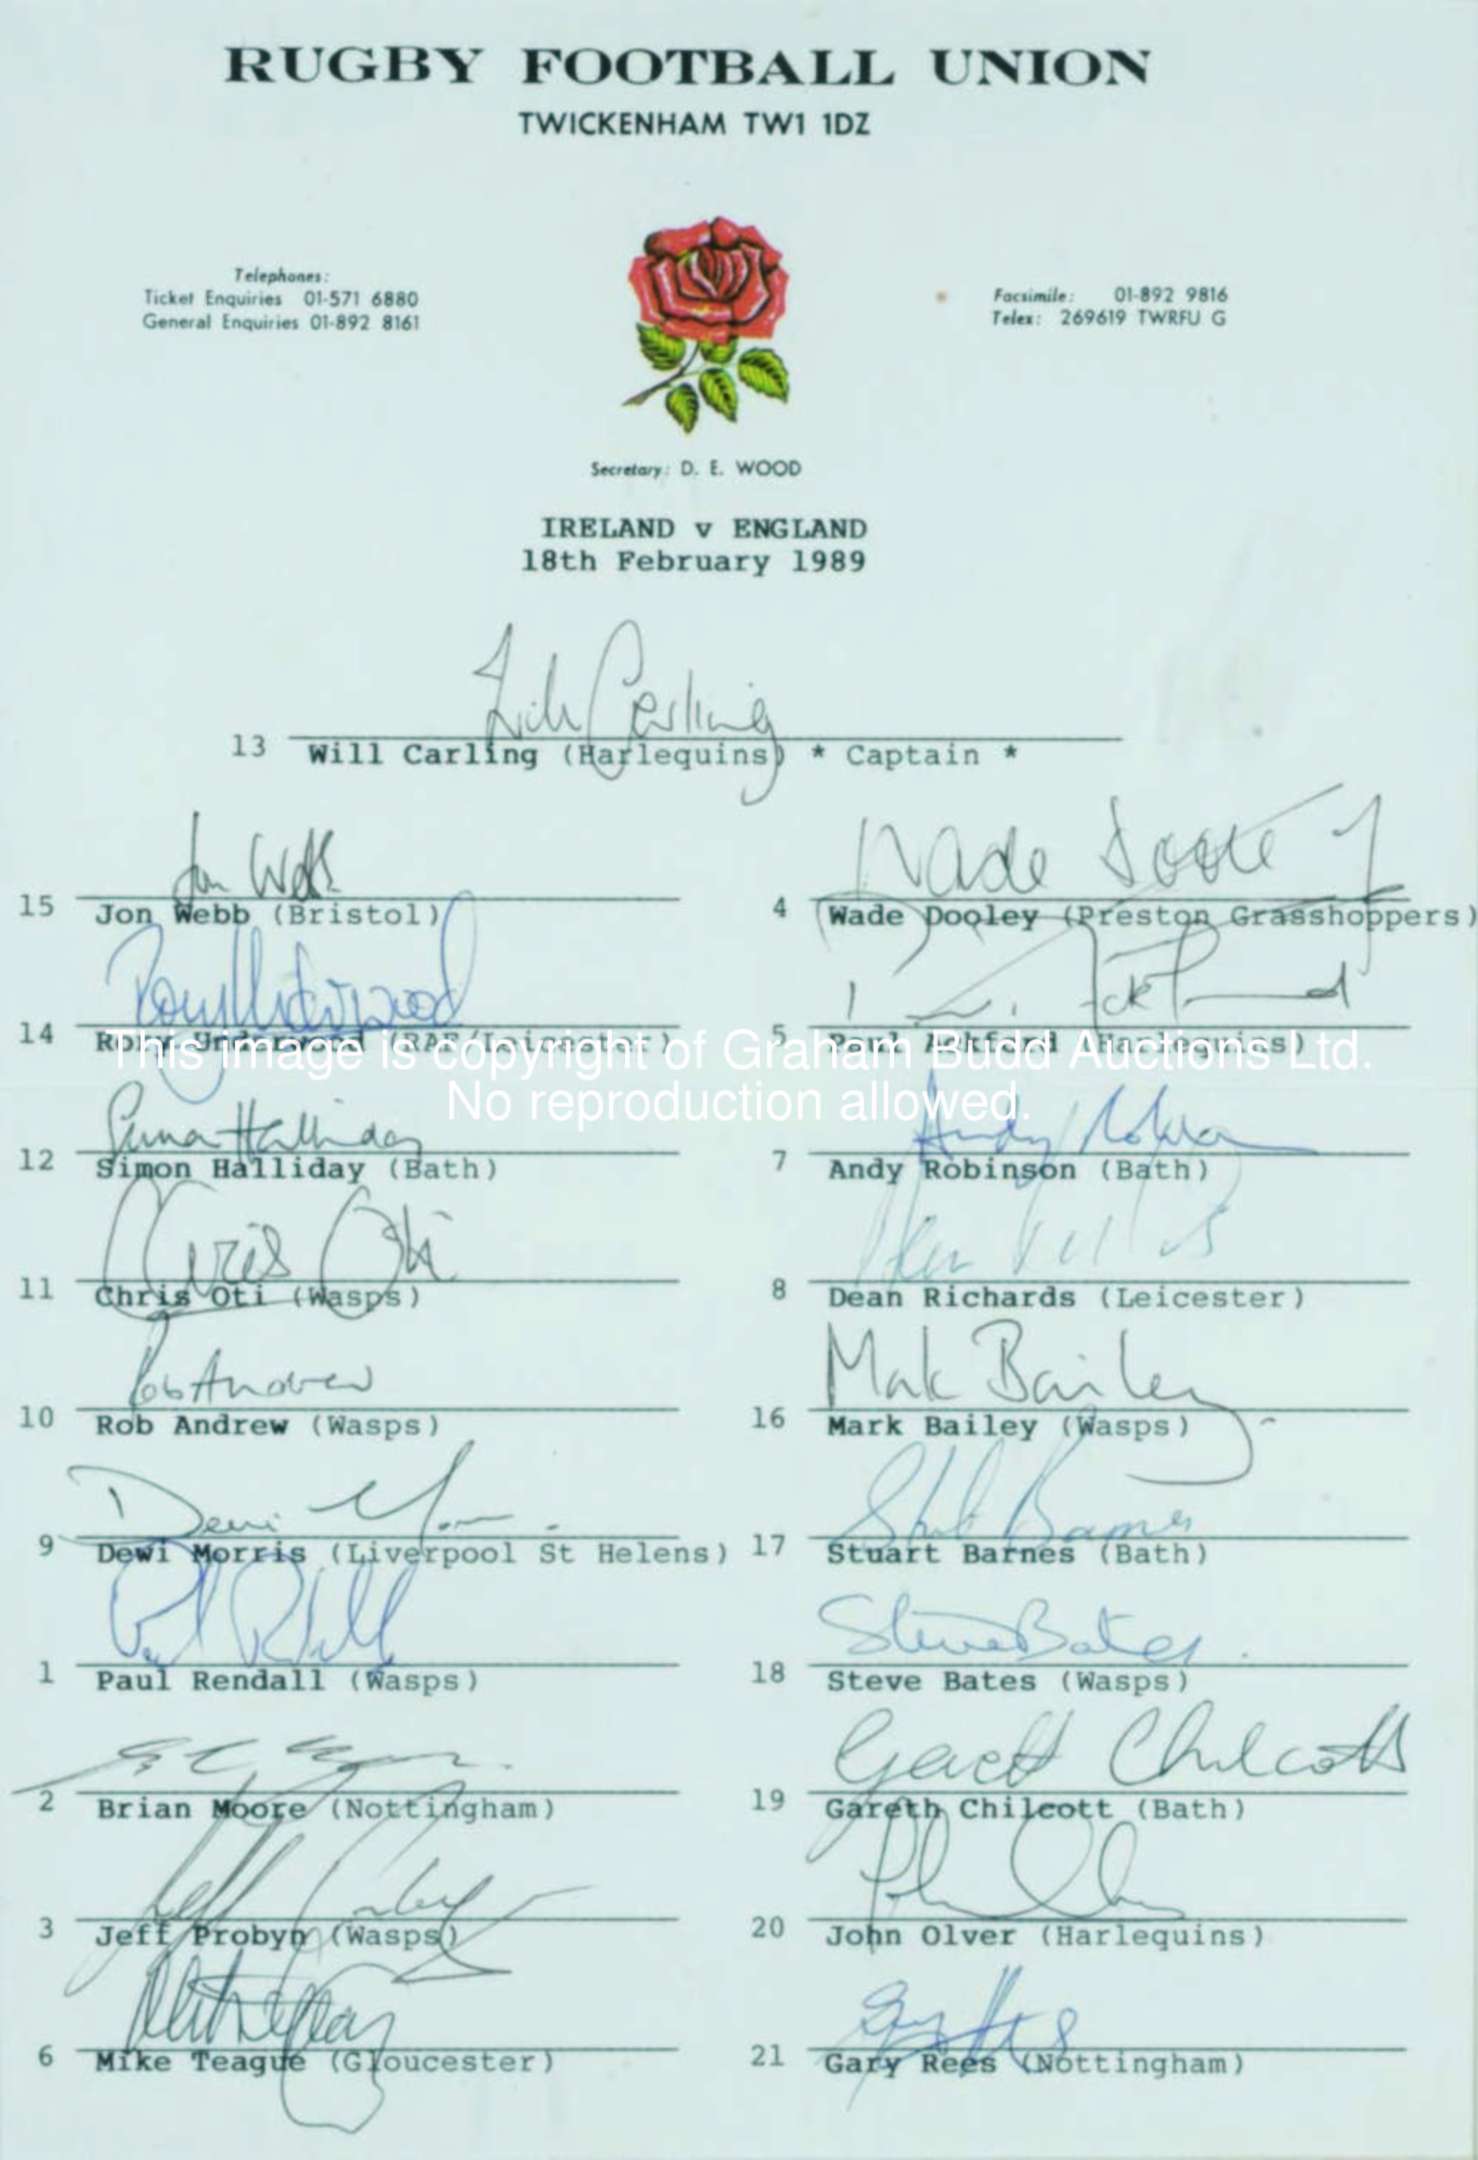 RUGBY FOOTBALL UNION
TWICKENHAM TW1 1DZ
Telephones:
Ticket Enquiries 01-571 6880
General Enquiries 01-892 8161
Facsimile: 01-892 9816
Telex: 269619 TWRFU G
Secretary: D. E. WOOD
IRELAND v ENGLAND
18th February 1989
Will Carling
13 Will Carling (Harlequins) * Captain *
Jon Webb
15 Jon Webb (Bristol)
Rory Underwood
14 Rory Underwood (RAF/Leicester)
Simon Halliday
12 Simon Halliday (Bath)
Chris Oti
11 Chris Oti (Wasps)
Rob Andrew
10 Rob Andrew (Wasps)
Dewi Morris
9 Dewi Morris (Liverpool St Helens)
Paul Rendall
1 Paul Rendall (Wasps)
2 Brian Moore (Nottingham)
Jeff Probyn
3 Jeff Probyn (Wasps)
Mike Teague
6 Mike Teague (Gloucester)
Wade Dooley
4 Wade Dooley (Preston Grasshoppers)
Paul Ackford
5 Paul Ackford (Harlequins)
Andy Robinson
7 Andy Robinson (Bath)
Dean Richards
8 Dean Richards (Leicester)
Mark Bailey
16 Mark Bailey (Wasps)
Stuart Barnes
17 Stuart Barnes (Bath)
Steve Bates
18 Steve Bates (Wasps)
Gareth Chilcott
19 Gareth Chilcott (Bath)
20 John Olver (Harlequins)
Gary Rees
21 Gary Rees (Nottingham)
This image is copyright of Graham Budd Auctions Ltd.
No reproduction allowed.